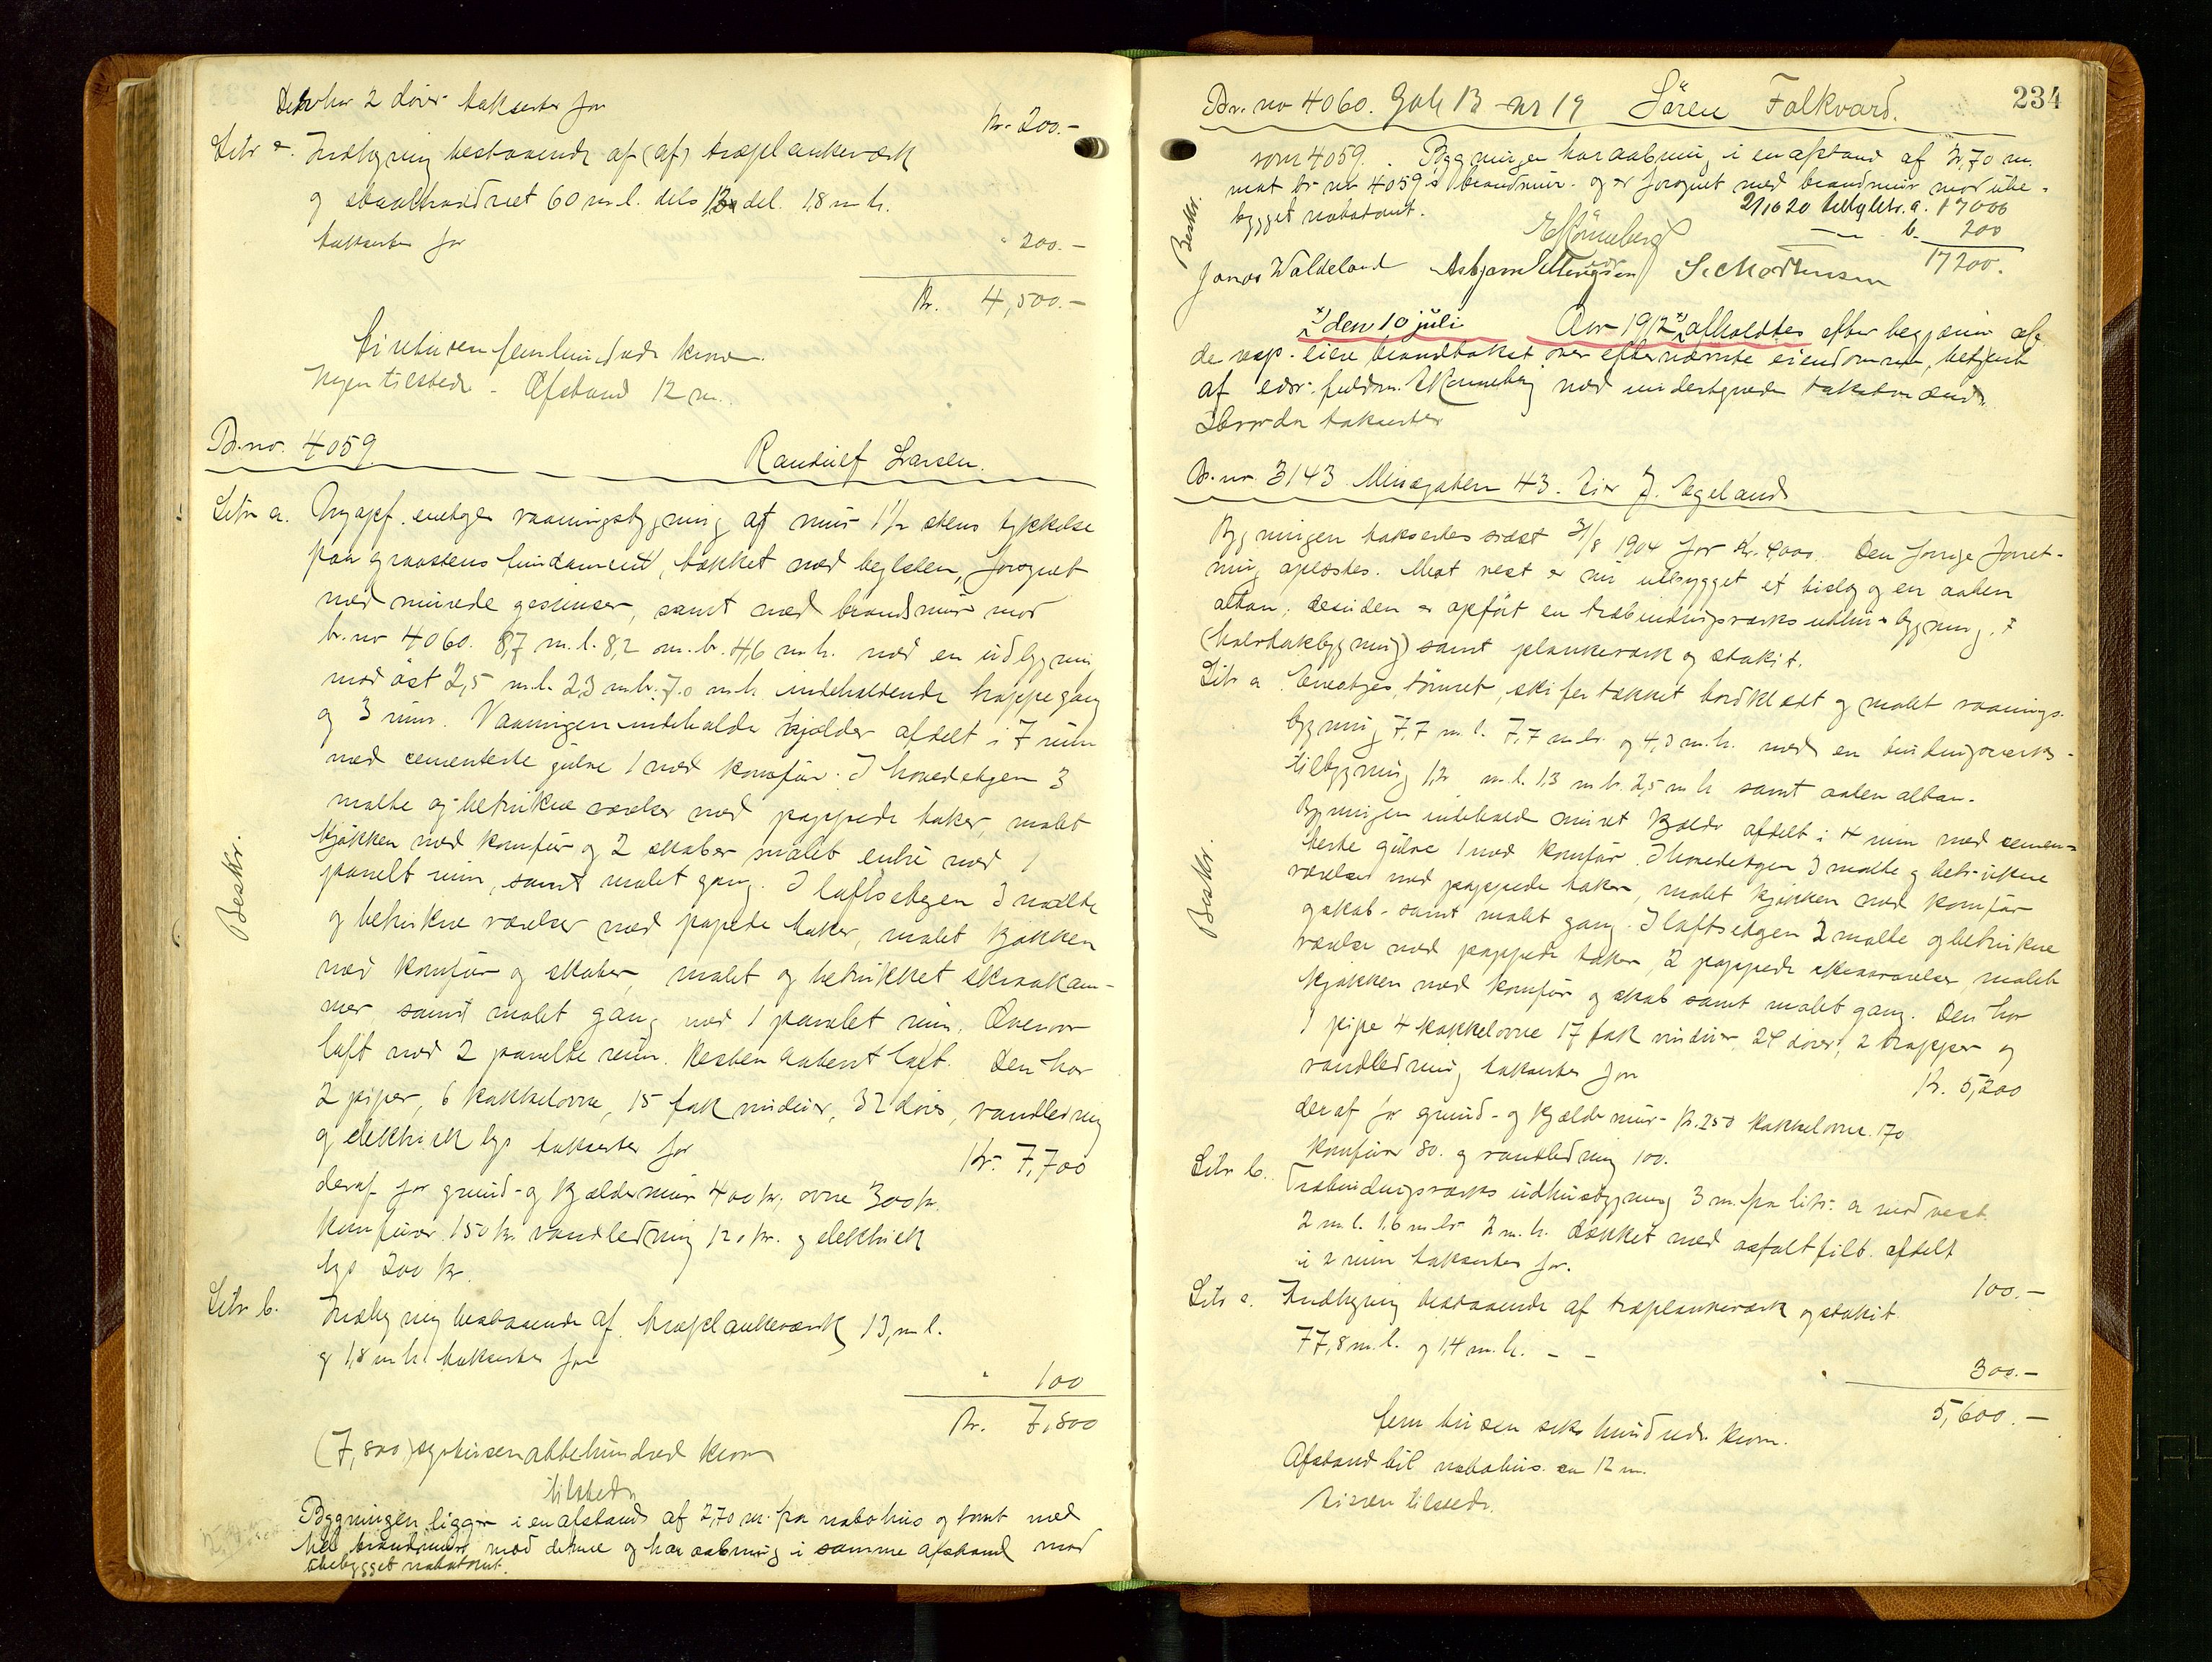 Den har 2 dører takseres for
kr. 200.-
Litr c. Indhegning bestaaende af (af) træplankeværk
og staaltraadnet 60 m. l. dels del. 1,8 m h.
takseres for
" 200.-
Kr. 4,500.-
firetusenfemhundrede kroner.
Ingen tilstede - Afstand 12 m.
Br. no. 4059 Randulf Larsen.
Litr a. Nyopf. enetages vaaningsbygning af mur 1½ stens tykkelse
paa graastens fundament, tækket med teglsten, forsynet
med murede gesimser, samt med brandmur mod
br. no 4060. 8,7 m. l. 8,2 m. br. 4,6 m h. med en udbygning
mod øst 2,5 m. l. 2,3 m br. 7.0 m h indeholdende trappegang
og 3 rum. Vaaningen indeholder kjælder afdelt i 7 rum
med cementerte gulve 1 med komfur. I hovedetagen 3
malte og betrukne værelser med pappede taker, malet
kjøkken med komfur og 2 skaber malet entré med 1
panelt rum, samt malet gang. I loftsetagen 3 malte
og betrukne værelser med papede taker, malet kjøkken
med komfur og skaber, malet og betrukket skraakam-
mer samt malet gang med 1 panelet rum. Ovenover
loft med 2 panelte rum. Resten aabent loft. Den har
2 piper, 6 kakkelovne, 15 fak vinduer, 32 døre, vandledning
og elektrisk lys takseres for
Kr. 7,700
deraf for grund- og kjældermur 400 kr, ovne 300 kr.
komfurer 150 kr. vandledning 120 kr. og elektrisk
lys 200 kr.
Litr b. Indhegning bestaaende af træplankeværk 13, m l.
og 1,8 m h. takseres for
" 100
Kr. 7,800
(7,800) syvtusenottehundred kroner
tilstede
Bygningen ligger i en afstand af 2,70 m. fra nabohus og tomt med
hel brandmur mod denne og har aabning i samme afstand mod
ubebygget nabotomt.
Beskr.
234
Br. no 4060. Gol B - nr 19 Sören Falkvard.
som 4059. Bygningen har aabning i en afstand af 2,70 m.
mot br no 4059's brandmur. og er forsynet med brandmur mod ube-
bygget nabotomt. 2/10 20 litr. a. 17000
b. 200
17200.
Beskr.
EKonneberg
Jonas Waldeland Asbjørn Ellingsen S. Mortensen
x) den 10 juli Aar 1912 x) afholdtes efter begjæring af
de resp. eiere brandtakst over efternævnte eiendomme, betjent
af edsv. fuldm. EKonneberg med undertegnede takstmænd.
Hvorda taksertes
Br. no. 3143 Misegaten 43. Eier J. Egeland
Bygningen taksertes sidst 3/8 1904 for Kr. 4000. Den forrige forret-
ning oplæstes. Mot vest er nu utbygget et bislag og en aaben
altan, desuden er opført en træbindingsværks udhusbygning.
(halvtaksbygning) samt plankeværk og stakit.
Litr a Eneetages, tømret, skifertækket bordklædt og malet vaanings-
bygning 7,7 m. l. 7,7 m br. og 4,0 m. h. med en bindingsværks-
tilbygning 1,2 m. l. 1,3 m br. 2,5 m h. samt aaben altan.
Bygningen indehold. muret kjælder afdelt i 4 rum med cemen-
terte gulve 1 med komfur. I hovedetagen 3 malte og betrukne
værelser med pappede taker, malet kjøkken med komfur
og skab - samt malet gang. I loftsetagen 2 malte og betrukne
værelser med pappede taker 2 pappede skraaværelser, malet
kjøkken med komfur og skab samt malet gang. Den har
1 pipe 4 kakkelovne 17 fak vinduer 24 dører, 2 trapper og
vandledning takseres for
Kr. 5,200
deraf for grund- og kjældermur- kr. 250 kakkelovne. 170
komfurer 80. og vandledning 100.
Beskr.
Litr b. Træbindingsværks udhusbygning 3 m. fra litr. a mod vest.
2 m l. 1,6 m br 2 m. h. tækket med asfaltfilt. afdelt
i 2 rum takseres for.
100.-
Litr c. Indhegning bestaaende af træplankeværk og stakit
77,8 m. l. og 1,4 m. h. - -
" 300.-
5,600.-
fem tusen seks hundrede kroner.
Afstand til nabohus ca 12 m.
Eieren tilstede.